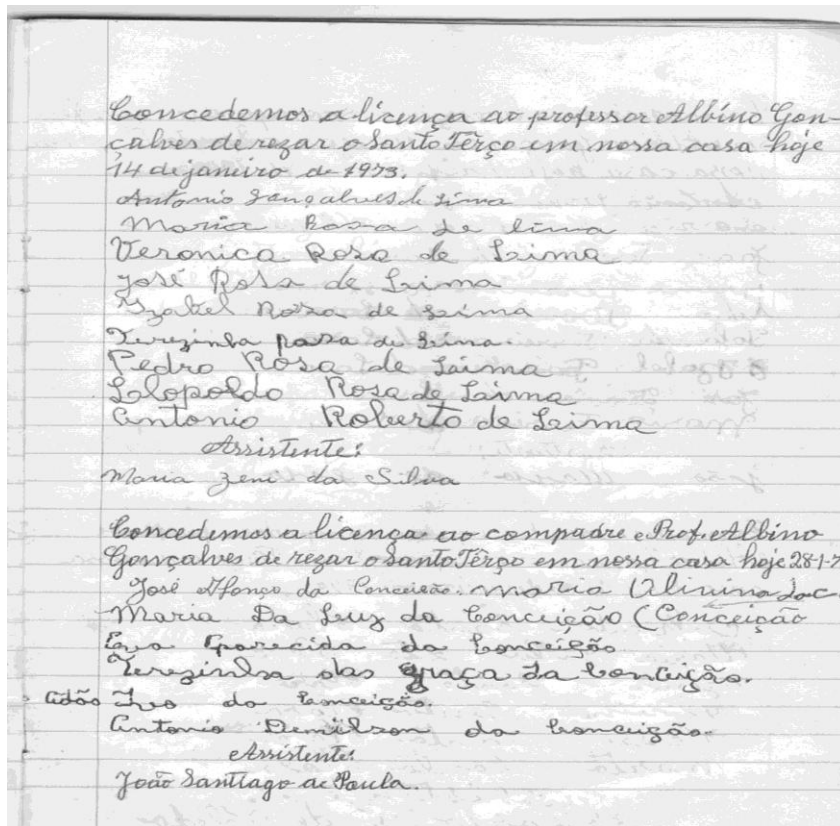 Concedemos a licença ao professor Albino Gon-
çalves de rezar o Santo Têrço em nossa casa hoje
14 de janeiro de 1973.
Antonio Gonçalves de Lima
Maria Rosa de lima
Veronica Rosa de Leima
José Rosa de Leima
Izabel Rosa de Leima
Terezinha de
Pedro Rosa de Laima
Leopoldo Rosa de Laima
Antonio Roberto de Leima
Assistente:
Maria Zeni da Silva
Concedemos a licença ao compadre e Prof. Albino
Gonçalves de rezar o Santo Têrço em nossa casa hoje 28-1-7
José Afonço da Conceição. Maria da C.
Maria Da Luz da Conceição (Conceição
Eva Aparecida da Conceição
Terezinha das graça da Conceição.
Adão Ivo da Conceição.
Antonio Demilson da Conceição.
Assistente:
João Santiago de Paula.